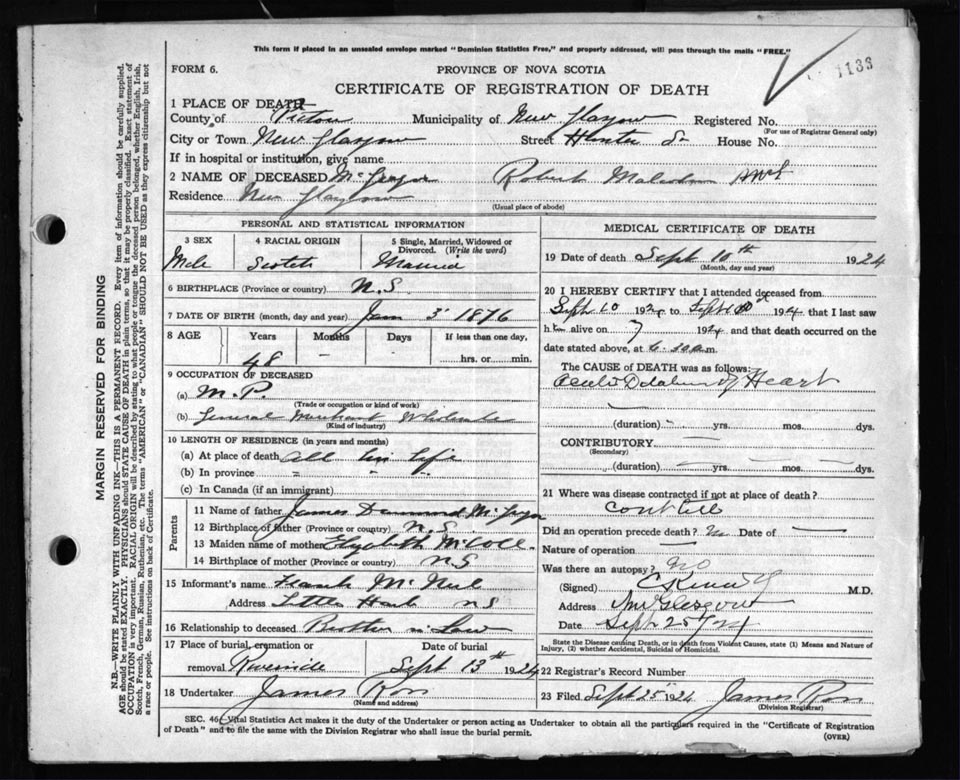 This form if placed in an unsealed envelope marked "Dominion Statistics Free," and properly addressed, will pass through the mails "FREE."
1133
FORM 6.
PROVINCE OF NOVA SCOTIA
CERTIFICATE OF REGISTRATION OF DEATH
1 PLACE OF DEATH
County of Pictou Municipality of New Glasgow Registered No.
(For use of Registrar General only)
City or Town New Glasgow Street House No.
If in hospital or institution, give name
2 NAME OF DECEASED McGregor Robert Malcolm
Residence New Glasgow
(Usual place of abode)
PERSONAL AND STATISTICAL INFORMATION
3 SEX 4 RACIAL ORIGIN 5 Single, Married, Widowed or Divorced. (Write the word)
Male Scotch Married
6 BIRTHPLACE (Province or country) N.S.
7 DATE OF BIRTH (month, day and year) Jan 3 1876
8 AGE Years Months Days If less than one day,
48 - - hrs. or min.
9 OCCUPATION OF DECEASED
(a) M.P.
(Trade or occupation or kind of work)
(b) General Merchant Wholesale
(Kind of industry)
10 LENGTH OF RESIDENCE (in years and months)
(a) At place of death All his life
(b) In province " " "
(c) In Canada (if an immigrant)
Parents
11 Name of father James Drummond McGregor
12 Birthplace of father (Province or country) N.S
13 Maiden name of mother Elizabeth McColl
14 Birthplace of mother (Province or country) N.S
15 Informant's name Frank McNeil
Address Little Harb N S
16 Relationship to deceased Brother in Law
17 Place of burial, cremation or removal Riverside
Date of burial Sept 13th 1924
18 Undertaker James Ross
(Name and address)
MEDICAL CERTIFICATE OF DEATH
19 Date of death Sept 10th 1924
(Month, day and year)
20 I HEREBY CERTIFY that I attended deceased from
Sept 10 1924 to Sept 1924 that I last saw
him alive on 1924 and that death occurred on the
date stated above, at 6.30 a m.
The CAUSE of DEATH was as follows:
Acute Dilatation of Heart
(duration) - yrs. mos. dys.
CONTRIBUTORY
(Secondary)
(duration) yrs. mos. dys.
21 Where was disease contracted if not at place of death?
Did an operation precede death? No Date of
Nature of operation
Was there an autopsy? No
(Signed) M.D.
Address New Glasgow
Date Sept 25/24
State the Disease causing Death, or in death from Violent Causes, state (1) Means and Nature of
Injury, (2) whether Accidental, Suicidal or Homicidal.
22 Registrar's Record Number
23 Filed Sept 25th 1924 James Ross
(Division Registrar)
SEC. 46 (Vital Statistics Act makes it the duty of the Undertaker or person acting as Undertaker to obtain all the particulars required in the "Certificate of Registration
of Death" and to file the same with the Division Registrar who shall issue the burial permit.
(OVER)
MARGIN RESERVED FOR BINDING
N.B.—WRITE PLAINLY WITH UNFADING INK—THIS IS A PERMANENT RECORD. Every item of information should be carefully supplied.
AGE should be stated EXACTLY. PHYSICIANS should STATE CAUSE OF DEATH in plain terms, so that it may be properly classified. Exact statement of
OCCUPATION is very important. RACIAL ORIGIN will be described by stating to what people or tongue the deceased person belonged, whether English, Irish,
Scotch, French, German, Russian, Ruthenian, etc. The terms "AMERICAN" or "CANADIAN" SHOULD NOT BE USED as they express citizenship but not
a race or people. See instructions on back of Certificate.